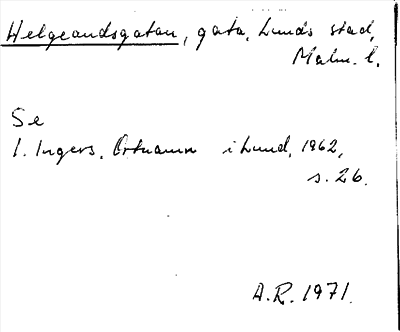 Helgeandsgatan, gata, Lunds stad,
Malm. l.
Se
I. Ingers, Ortnamn i Lund, 1962,
s. 26.
A.R. 1971.